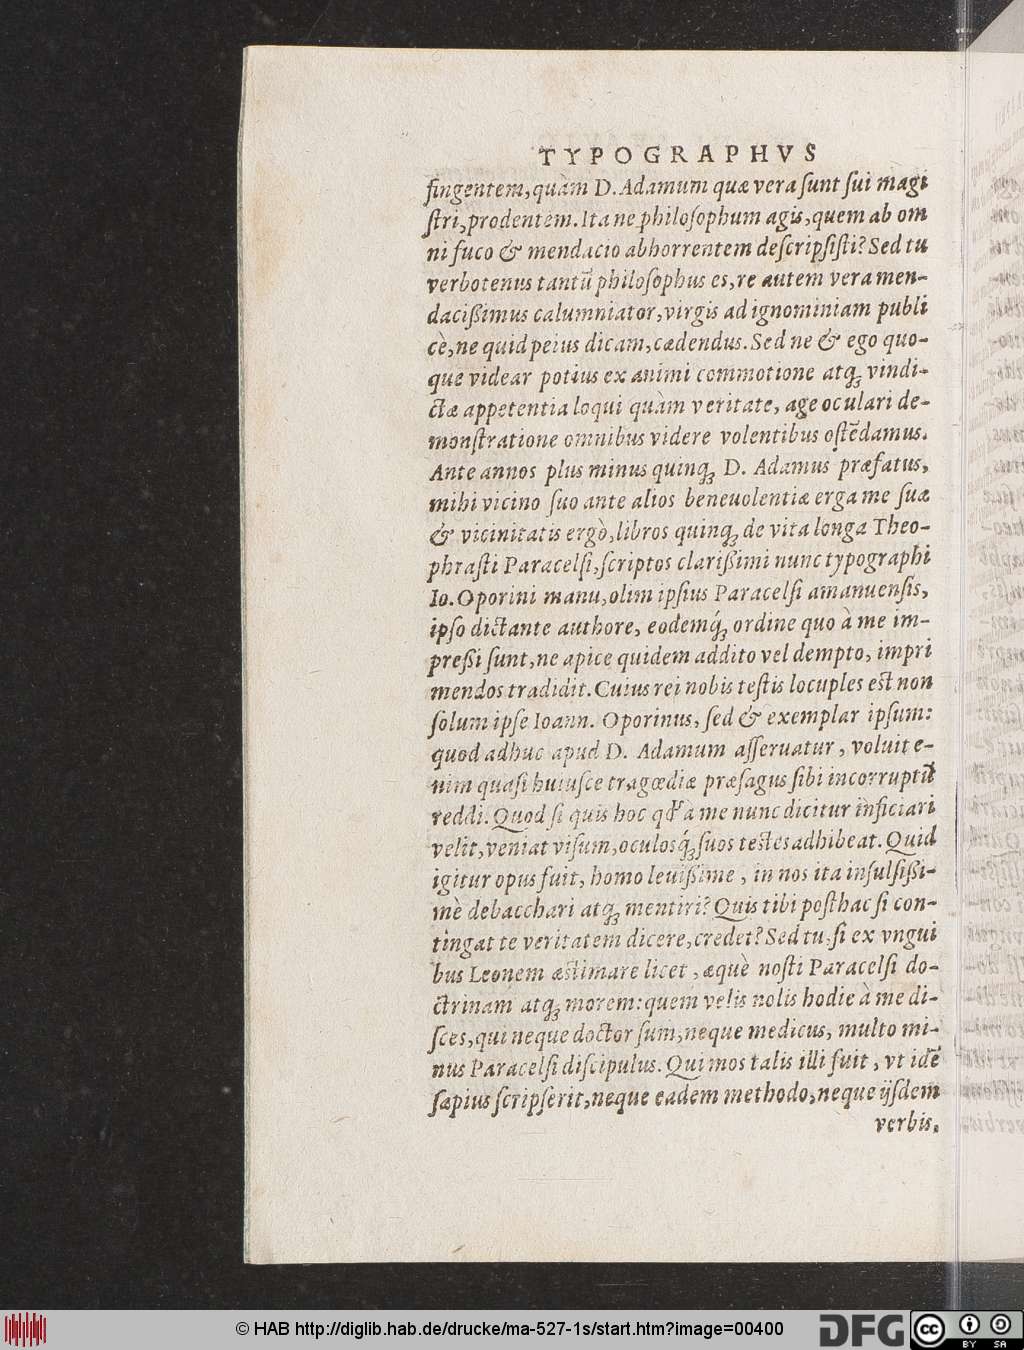 TYPOGRAPHVS
fingentem, quàm D. Adamum quæ vera sunt sui magi
stri, prodentem. Ita ne philosophum agis, quem ab om
ni fuco & mendacio abhorrentem descripsisti? Sed tu
verbotenus tantū philosophus es, re autem vera men-
dacißimus calumniator, virgis ad ignominiam publi
cè, ne quid peius dicam, cædendus. Sed ne & ego quo-
que videar potius ex animi commotione atq; vindi-
ctæ appetentia loqui quàm veritate, age oculari de-
monstratione omnibus videre volentibus ostēdamus.
Ante annos plus minus quinq; D. Adamus præfatus,
mihi vicino suo ante alios beneuolentiæ erga me suæ
& vicinitatis ergò, libros quinq; de vita longa Theo-
phrasti Paracelsi, scriptos clarißimi nunc typographi
Io. Oporini manu, olim ipsius Paracelsi amanuensis,
ipso dictante authore, eodemq́; ordine quo à me im-
preßi sunt, ne apice quidem addito vel dempto, impri
mendos tradidit. Cuius rei nobis testis locuples est non
solum ipse Ioann. Oporinus, sed & exemplar ipsum:
quod adhuc apud D. Adamum asseruatur, voluit e-
nim quasi huiusce tragœdiæ præsagus sibi incorruptū
reddi. Quod si quis hoc qđ à me nunc dicitur inficiari
velit, veniat visum, oculosq́; suos testes adhibeat. Quid
igitur opus fuit, homo leuißime, in nos ita insulsißi-
mè debacchari atq; mentiri? Quis tibi posthac si con-
tingat te veritatem dicere, credet? Sed tu, si ex vngui
bus Leonem æstimare licet, æquè nosti Paracelsi do-
ctrinam atq; morem: quem velis nolis hodie à me di-
sces, qui neque doctor sum, neque medicus, multo mi-
nus Paracelsi discipulus. Qui mos talis illi fuit, vt idē
sæpius scripserit, neque eadem methodo, neque ijsdem
verbis.
© HAB http://diglib.hab.de/drucke/ma-527-1s/start.htm?image=00400
DFG
cc BY SA